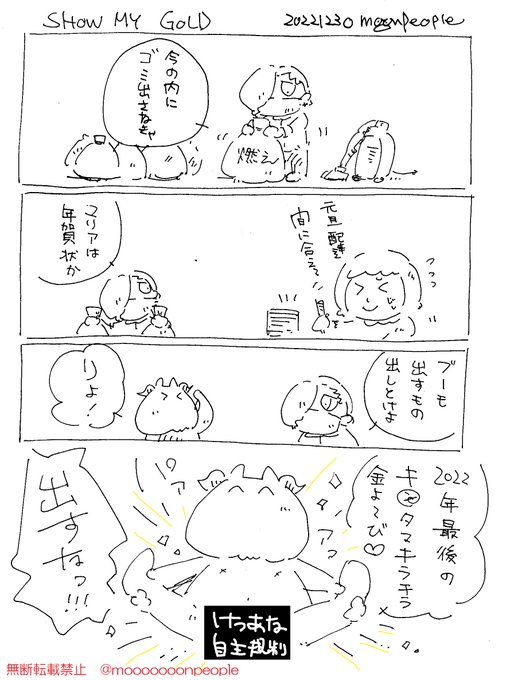 SHOW MY GOLD
20221230 moonpeople
今の内に
ゴミ出さねきゃ
燃え
元旦配達
間に合え〜
マリアは
年賀状か
ブーも
出すもの
出しとけよ
りょ!
2022
年最後の
キンタマキラキラ
金よーび♡
出すなっ!!!
けつあな
自主規制
無断転載禁止 @mooooooonpeople